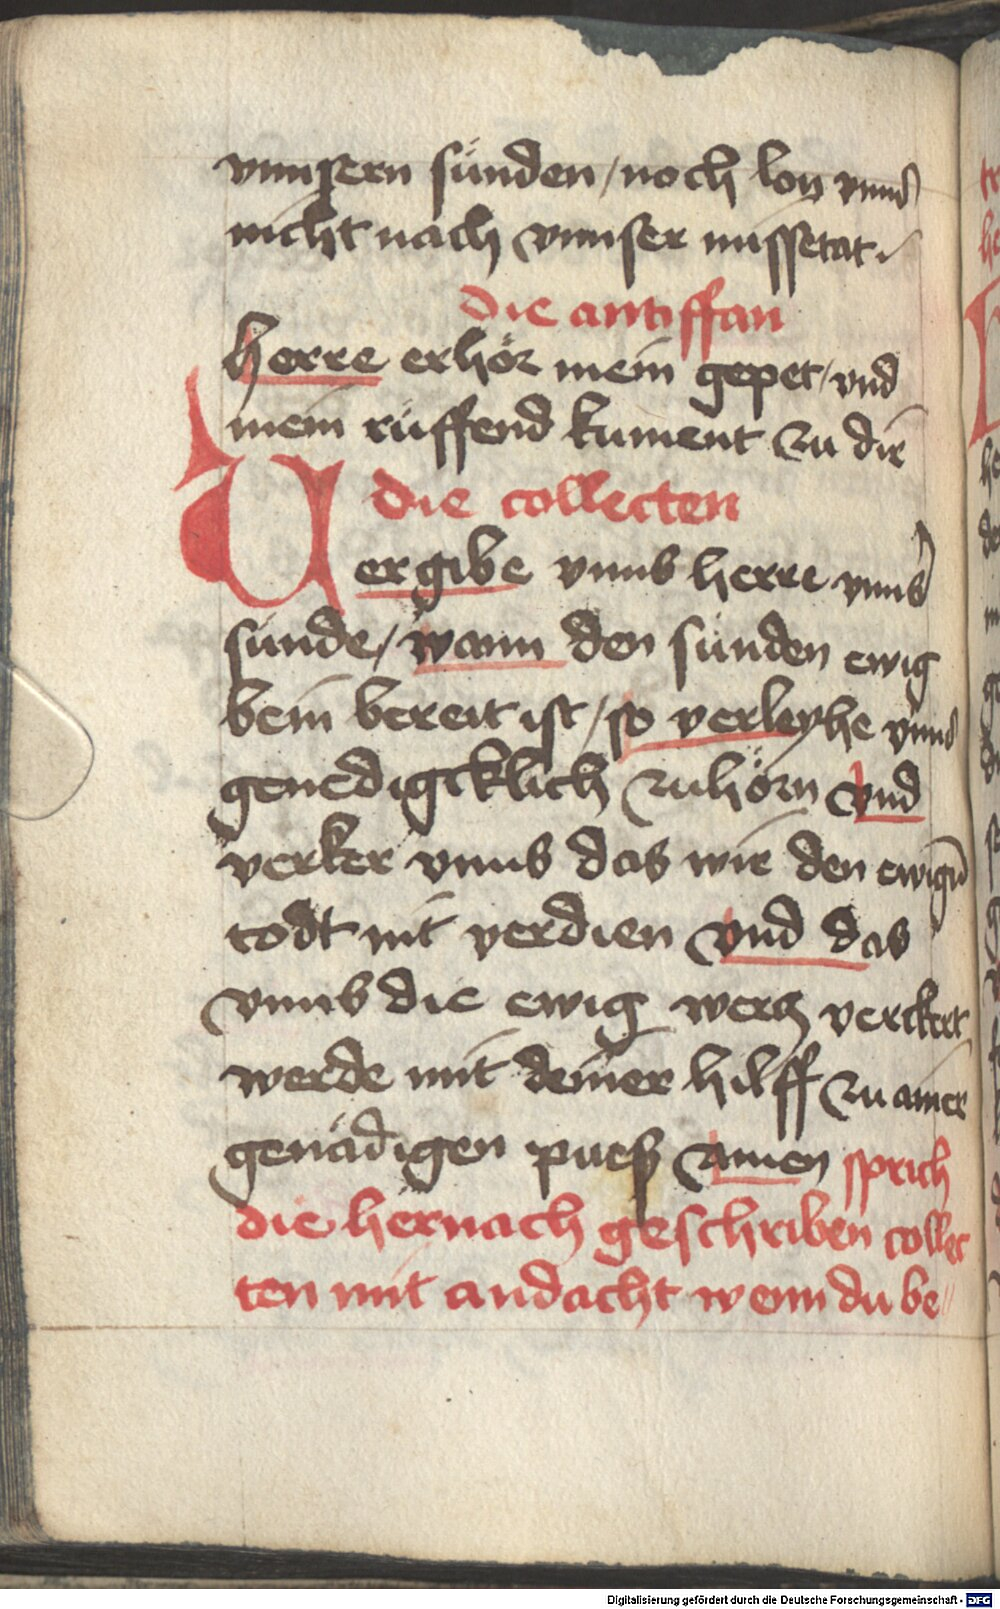 vnnsern sünden / noch lon vnns
nicht nach vnnser missetat ·
die antiffan
herre erhör mein gepet / vnd
mein rüffend kument zu dir
die collecten
Vergibe vnns herre vnns
sünde / wann den sünden ewig
bein bereit ist / so verleyhe vnns
genedigcklich zuhörn vnd
verker vnns das wir den ewigñ
todt nit verdien vnd das
vnns die ewig werh verckert
werde mit deiner hilff zu ainer
genädigen pueß amen sprich
die hernach geschriben collec
ten mit andacht wenn du be //
Digitalisierung gefördert durch die Deutsche Forschungsgemeinschaft - DFG